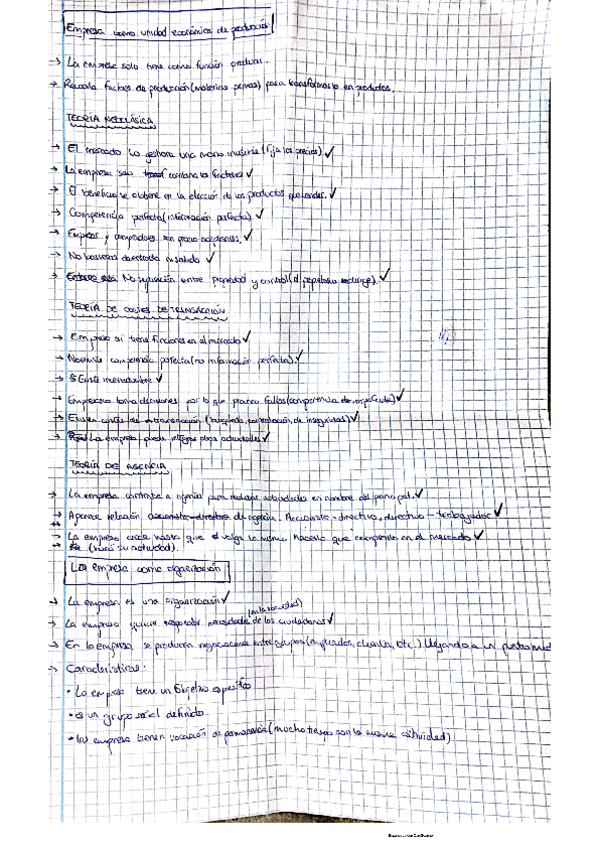 Empresa como unidad económica de producción
→ La empresa solo tiene como función producir.
→ Recoge factores de producción (materias primas) para transformarlo en productos.
TEORÍA NEOCLÁSICA
→ El mercado lo gestiona una mano invisible (fija los precios) ✓
→ La empresa solo combina los factores ✓
→ El beneficio se obtiene en la elección de los productos que vender. ✓
→ Competencia perfecta (información perfecta) ✓
→ Empresas y compradores son precio aceptantes. ✓
→ No ✓
→ No separación entre propiedad y control (el propietario ✓
TEORÍA DE COSTES DE TRANSACCIÓN
→ Empresa si tiene funciones en el mercado ✓
→ No existe competencia perfecta (no información perfecta). ✓
→ Existe incertidumbre ✓
→ Empresario toma decisiones por lo que pueden fallos (competencia ✓
→ Existen costes de transacción ( contratación, de inseguridad) ✓
→ La empresa puede integrar otras actividades ✓
TEORÍA DE AGENCIA
→ La empresa contrata a agentes para realizar actividades en nombre del principal. ✓
→ Aparece relación de agencia. Accionista - directivo, directivo - trabajador ✓
→ La empresa crece hasta que valga lo mismo hacerlo que comprarlo en el mercado ✓
(hacia su actividad).
La empresa como organización
→ La empresa es una organización ✓
(en la sociedad)
→ La empresa quiere responder necesidades de los ciudadanos ✓
→ En la empresa se producen negociaciones entre grupos (empleados, clientes, etc.) llegando a un punto
→ Características:
• La empresa tiene un objetivo específico
• es un grupo social definido
• las empresa tienen vocación de permanencia (mucho tiempo con la misma actividad)